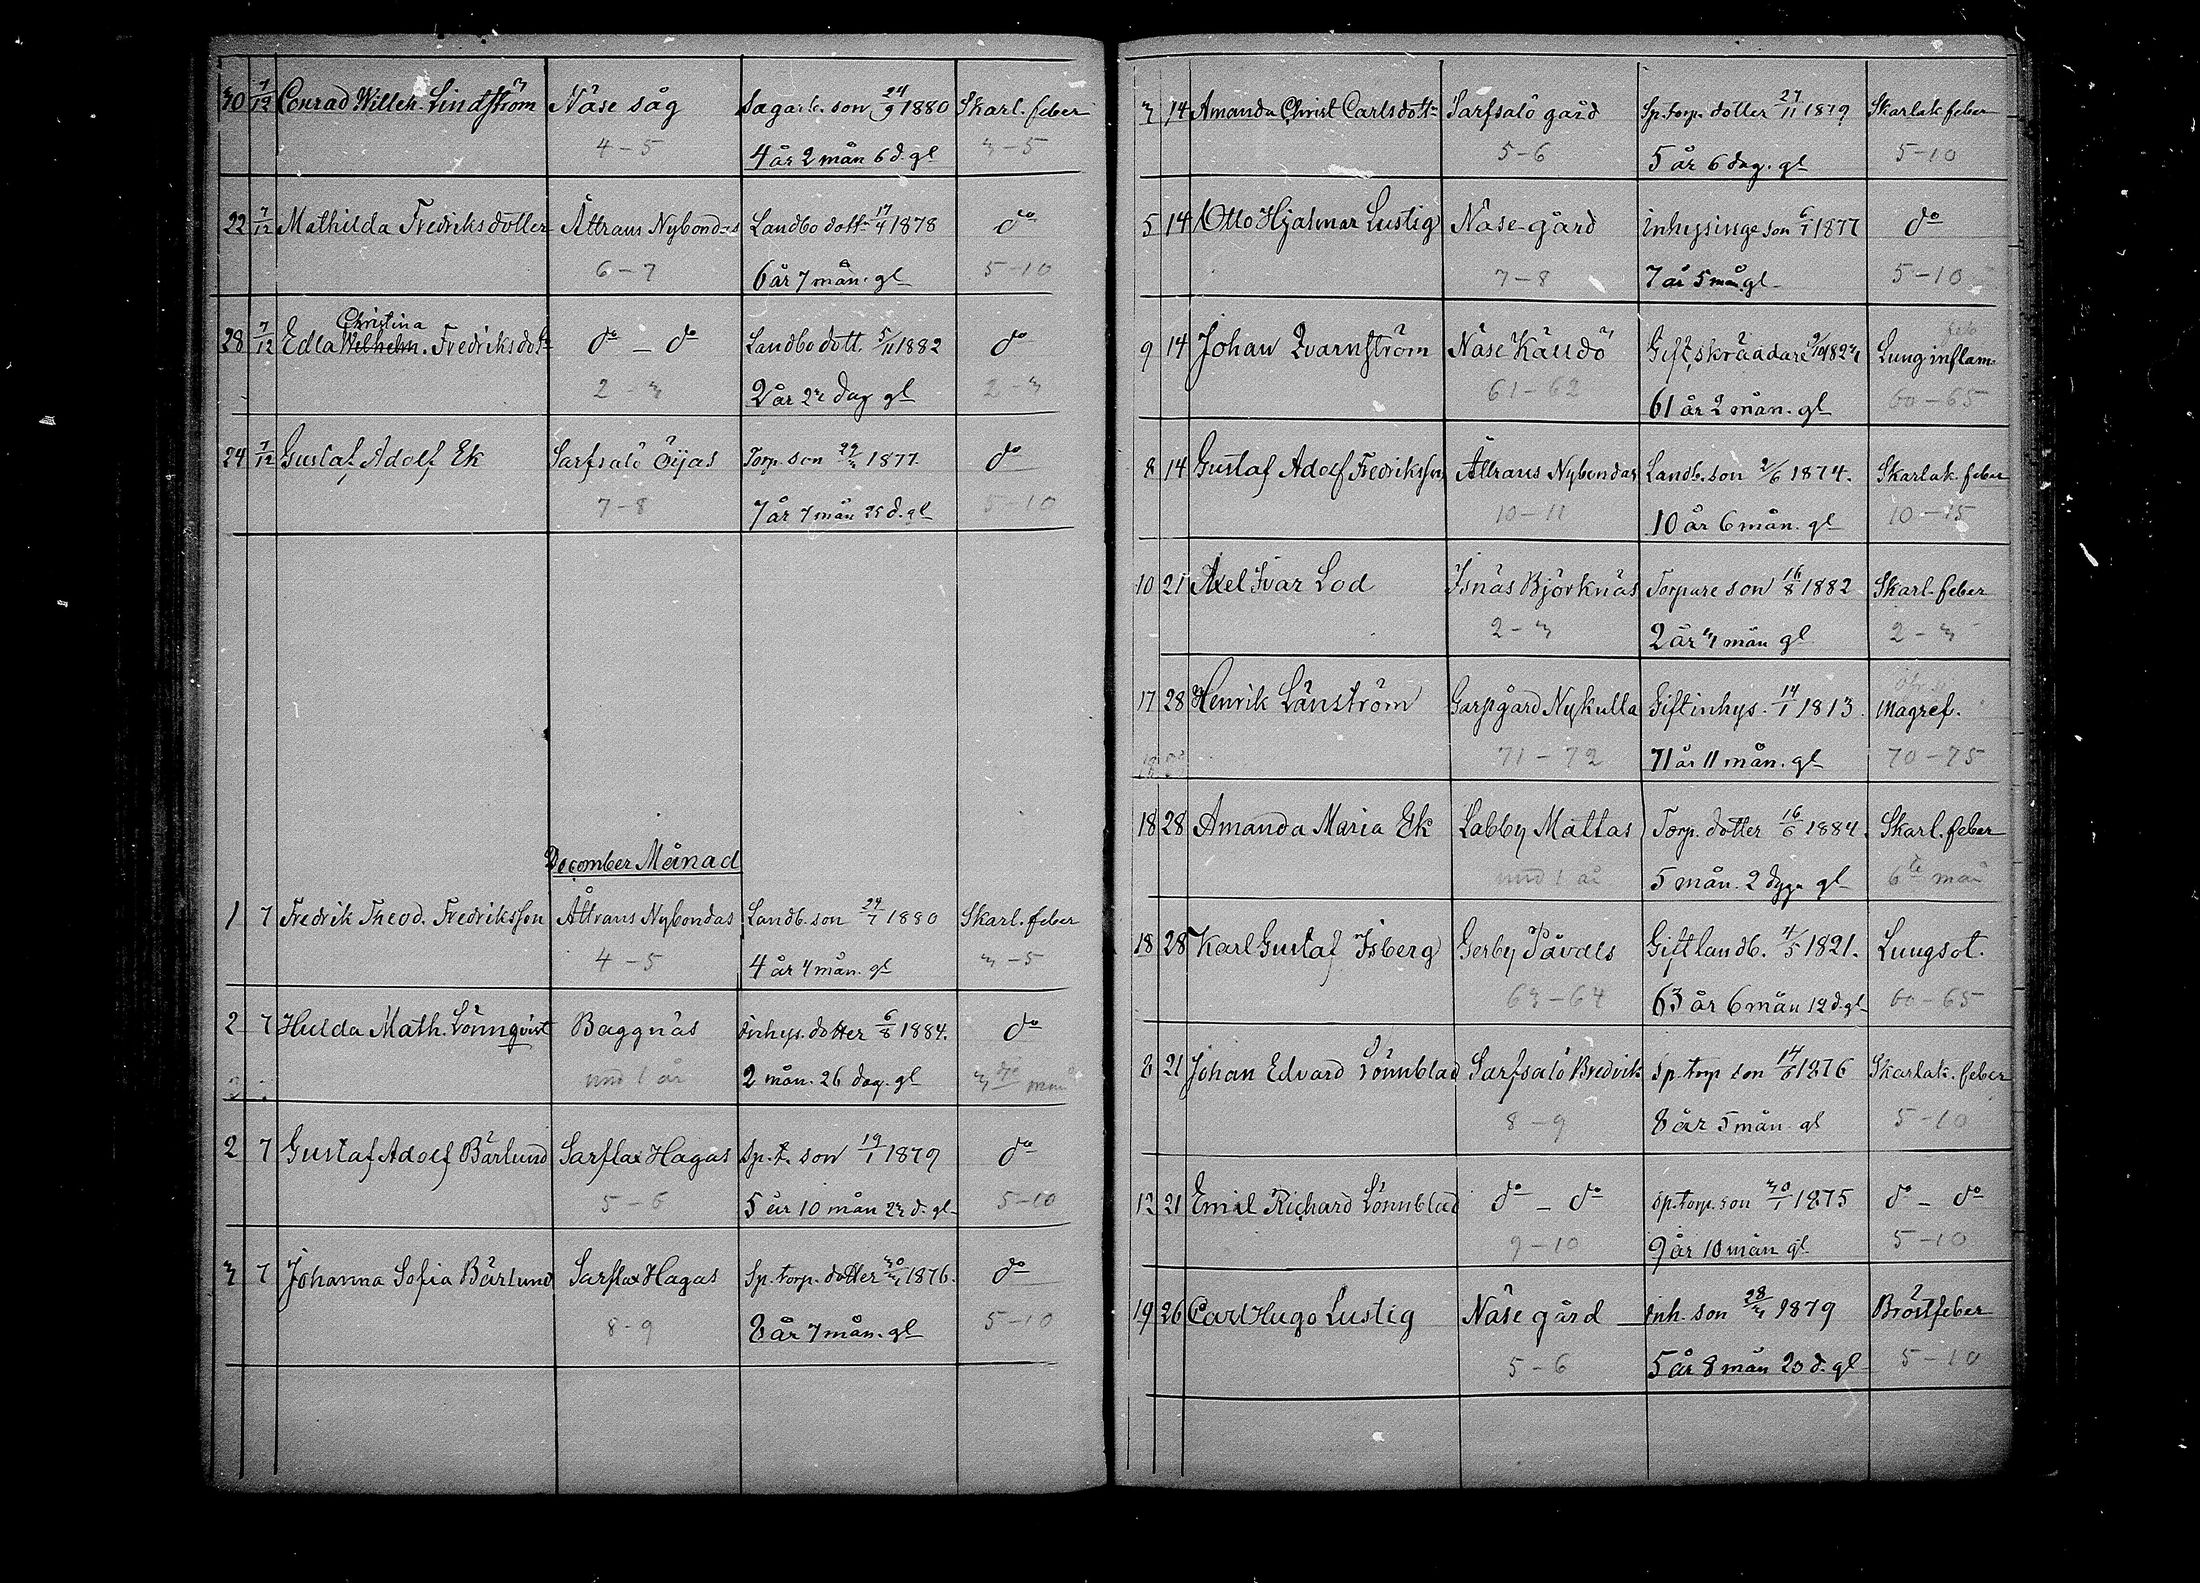 30 7/12 Conrad Willeh. Lindström Näse såg Sagark. son 24/9 1880 Skarl. feber
4-5 4 år 2 mån 6 d. gl 3-5
22 7/12 Mathilda Fredriksdotter Ättraus Nybondas Landbo dottr 17/4 1878 do
6-7 6 år 7 mån. gl 5-10
Christina
28 7/12 Edla Wilhelm. Fredriksdotr do - do Landbo dott. 5/11 1882 do
2-3 2 år 23 dag gl 2-3
24 7/12 Gustaf Adolf Ek Sarfsalö Öijas Torp. son 29/3 1877. do
7-8 7 år 7 mån 25 d. gl 5-10
December Månad
1 7 Fredrik Theod. Fredriksson Ättraus Nybondas Landb. son 24/7 1880 Skarl. feber
4-5 4 år 4 mån. gl 3-5
2 7 Hulda Math. Lönnqvist Baggnäs Inhys. dotter 6/8 1884. do
und 1 år 2 mån. 26 dag. gl 3dje mån
2 7 Gustaf Adolf Bärlund Sarflax Hagas Sp. t. son 19/1 1879 do
5-6 5 år 10 mån 23 d. gl 5-10
3 7 Johanna Sofia Bärlund Sarflax Hagas Sp. torp. dotter 30/4 1876. do
8-9 8 år 7 mån. gl 5-10
3 14 Amanda Christ Carlsdottr Sarfsalö gård Sp. torp. dotter 27/11 1879 Skarlak feber
5-6 5 år 6 dag. gl 5-10
5 14 Otto Hjalmar Lustig Näse gård Inhysinge son 6/7 1877 do
7-8 7 år 5 mån. gl 5-10
9 14 Johan Qvarnström Näse Källdö Gift, skräddare 9/10 1823 Lunginflam.
61-62 61 år 2 mån. gl 60-65
8 14 Gustaf Adolf Fredriksson Ättraus Nybondas Landb. son 2/6 1874. Skarlak. feber
10-11 10 år 6 mån. gl 10-15
10 21 Axel Ivar Lod Isnäs Björknäs Torpare son 16/8 1882 Skarl. feber
2-3 2 år 4 mån gl 2-3
17 28 Henrik Länström Garpgård Nykulla Gift inhys. 14/1 1813. Magref.
71-72 71 år 11 mån. gl 70-75
18 28 Amanda Maria Ek Labby Mattas Torp. dotter 16/6 1884. Skarl. feber
und 1 år 5 mån. 2 dygn gl 6te mån
18 28 Karl Gustaf Isberg Gerby Påvals Gift landb. 4/5 1821. Lungsot.
63-64 63 år 6 mån 12 d. gl 60-65
8 21 Johan Edvard Lönnblad Sarfsalö Bredvik Sp. torp son 14/6 1876 Skarlak. feber
8-9 8 år 5 mån gl 5-10
12 21 Emil Richard Lönnblad do - do Sp. torp. son 30/1 1875 do - do
9-10 9 år 10 mån gl 5-10
19 26 Carl Hugo Lustig Näse gård Inh. son 28/3 1879 Bröstfeber
5-6 5 år 8 mån 20 d. gl 5-10